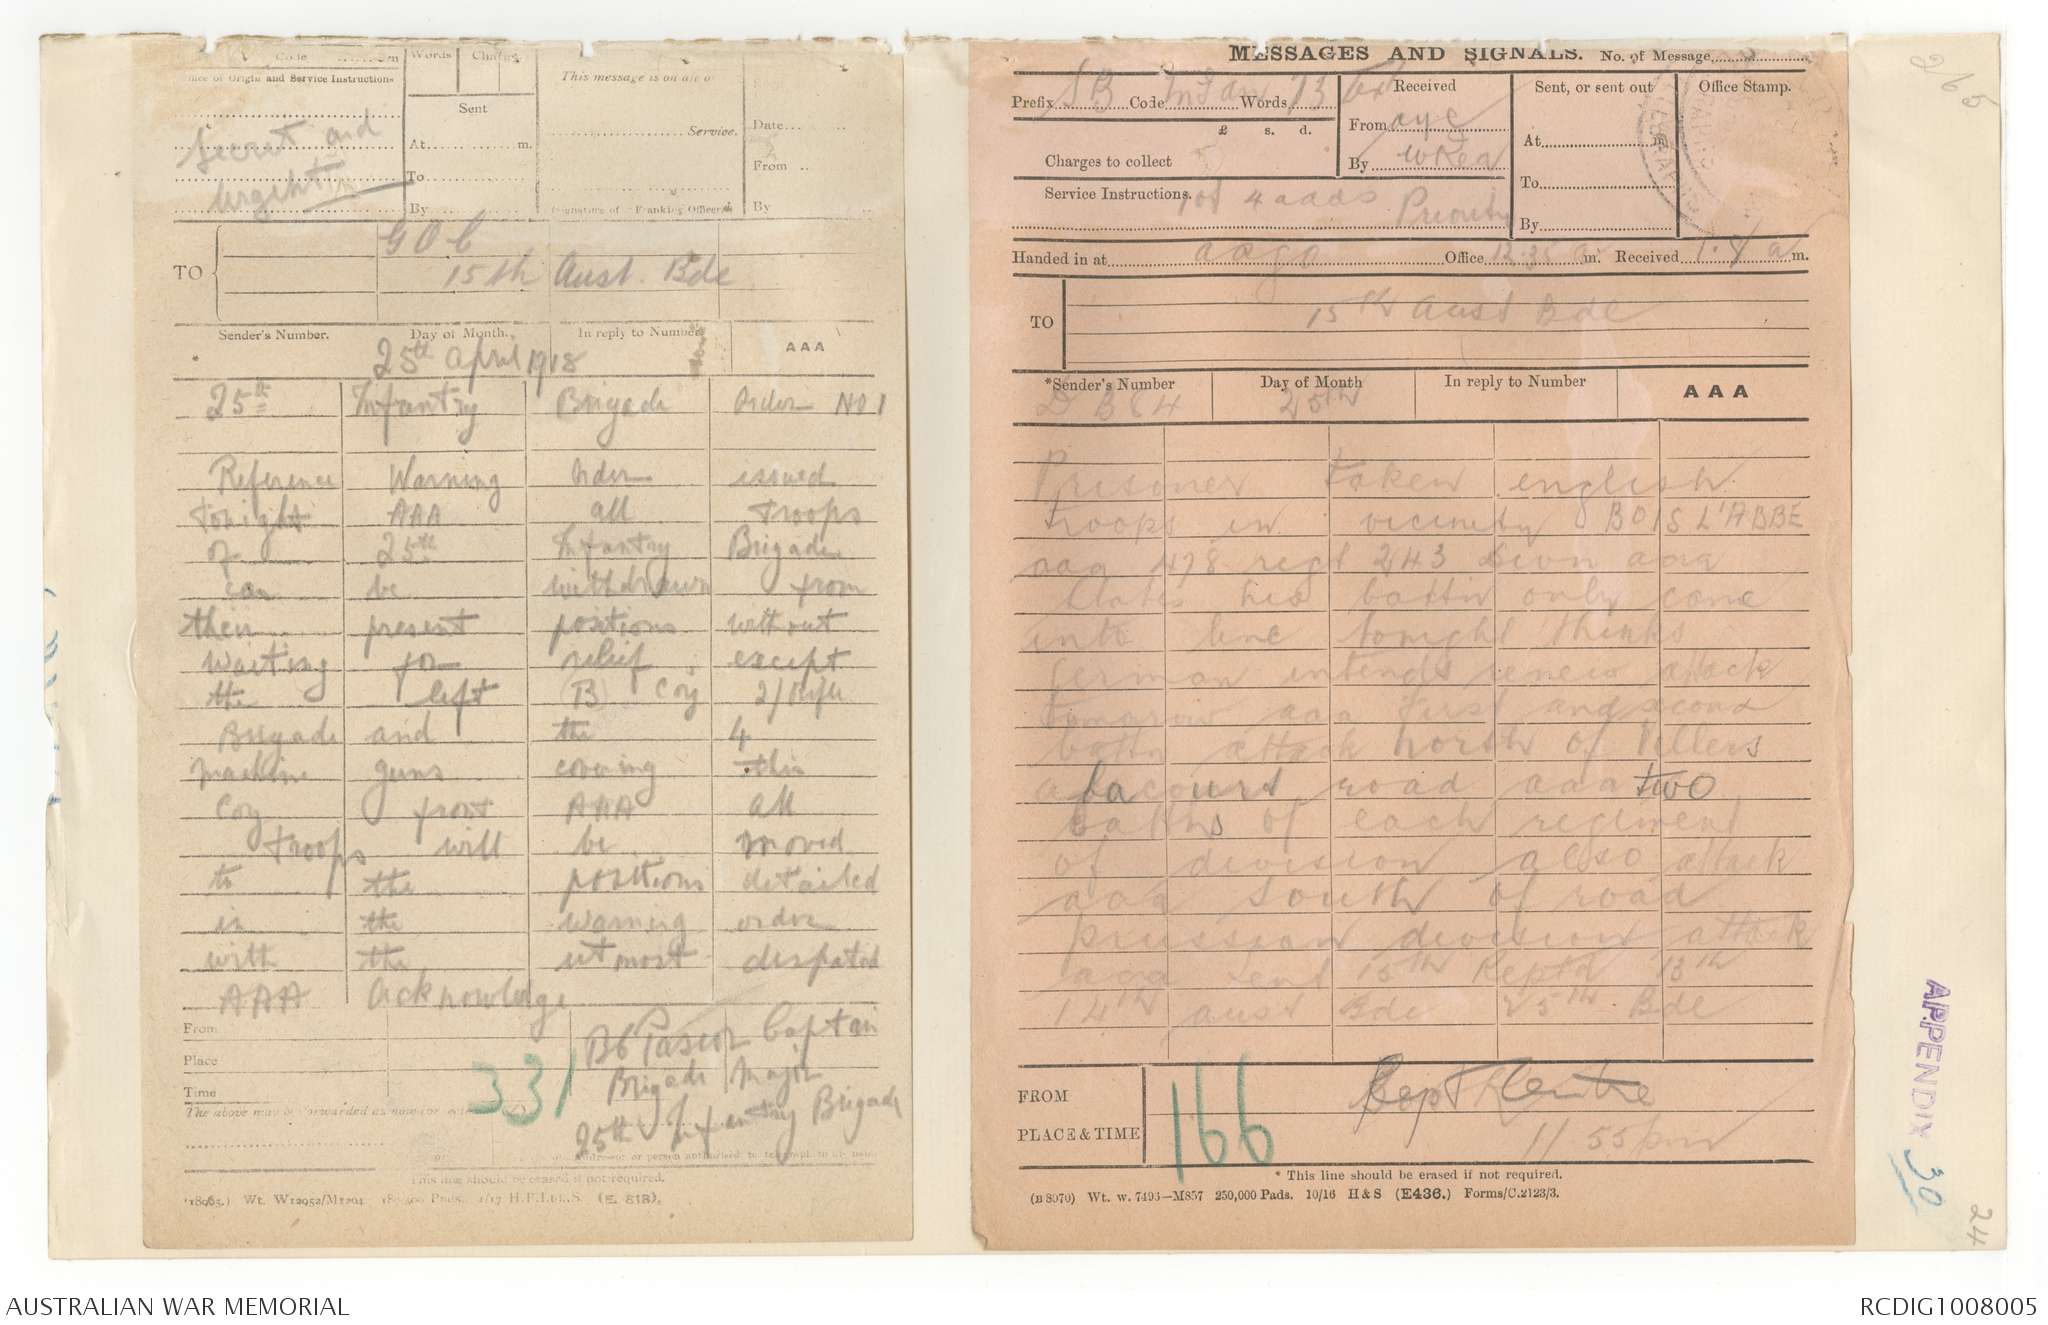 Code m
Words Charge
Office of Origin and Service Instructions
Secret and
Urgent
Sent
At m.
To
By
This message is on a/c of
Service.
(Signature of "Franking Officer")
Date
From
By
TO
G O C
15th Aust. Bde
Sender's Number.
Day of Month.
In reply to Number
AAA
25th April 1918
25th Infantry Brigade Order No 1
Reference Warning Order issued
tonight AAA all troops
of 25th Infantry Brigade
can be withdrawn from
their present positions without
waiting for relief except
the left (B) Coy 2/Rifle
Brigade and the 4
machine guns covering this
Coy front AAA all
troops will be moved
to the positions detailed
in the warning order
with the utmost despatch
AAA Acknowledge
From
Place
Time
331
Captain
Brigade Major
25th Infantry Brigade
The above may be forwarded as now corrected
This line should be erased if not required.
Wt. W12952/M1294 H.P.Ltd. (E. 818).
MESSAGES AND SIGNALS. No. of Message
Prefix SB Code Words 73
£ s. d.
Charges to collect
Received
From
By
Sent, or sent out
At m.
To
By
Office Stamp.
Service Instructions.
4 adds Priority
Handed in at Office 12.35 a m. Received 1.8 a m.
TO
15th Aust Bde
*Sender's Number
Day of Month
In reply to Number
AAA
25th
Prisoner taken english
troops in vicinity BOIS L'ABBE
aaa 478 regt 243 Divn aaa
States his battn only came
into line tonight thinks
German intends renew attack
tomorrow aaa first and second
battn attack north of Villers
road aaa two
battns of each regiment
of division also attack
aaa South of road
prussian division attack
aaa sent 15th Reptd 13th
14th aust Bde 25th Bde
FROM
PLACE & TIME
166
11 55 pm
* This line should be erased if not required.
(B 8970) Wt. w. 7493—M857 250,000 Pads. 10/16 H & S (E436.) Forms/C.2123/3.
265
APPENDIX 30
24
AUSTRALIAN WAR MEMORIAL
RCDIG1008005